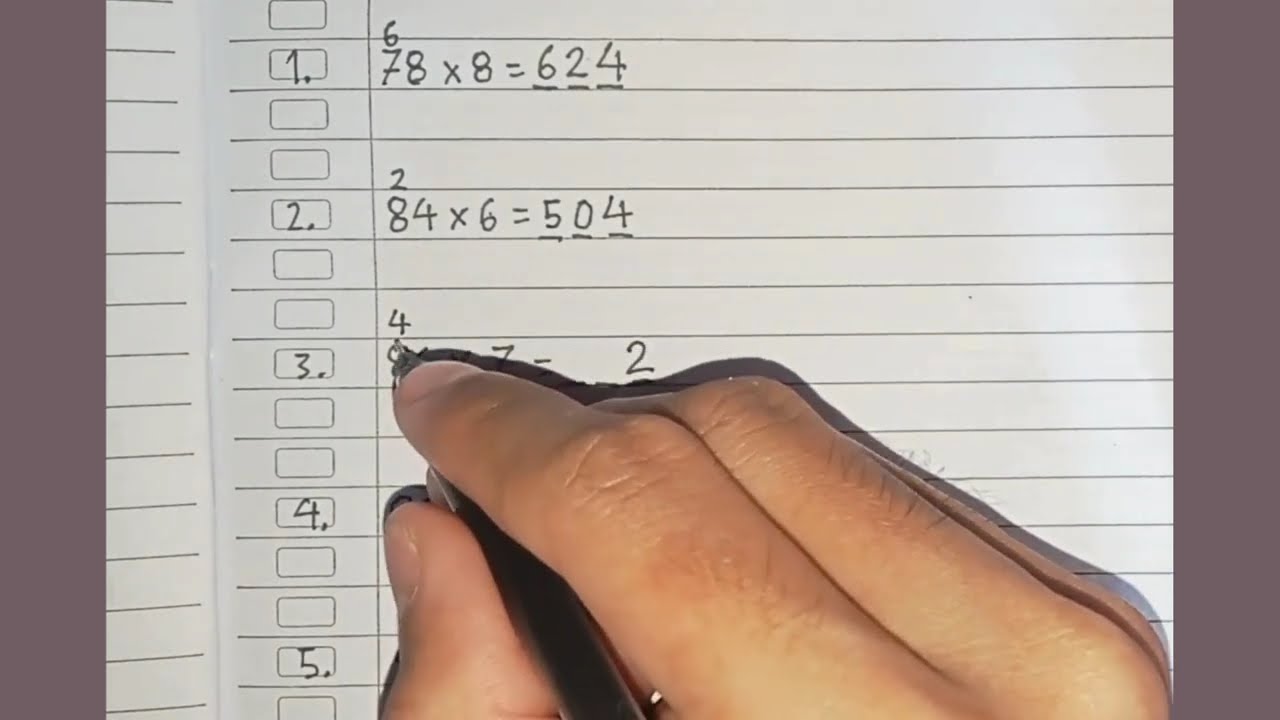 6
1. 78 x 8 = 624
2
2. 84 x 6 = 504
4
3. 7 = 2
4.
5.